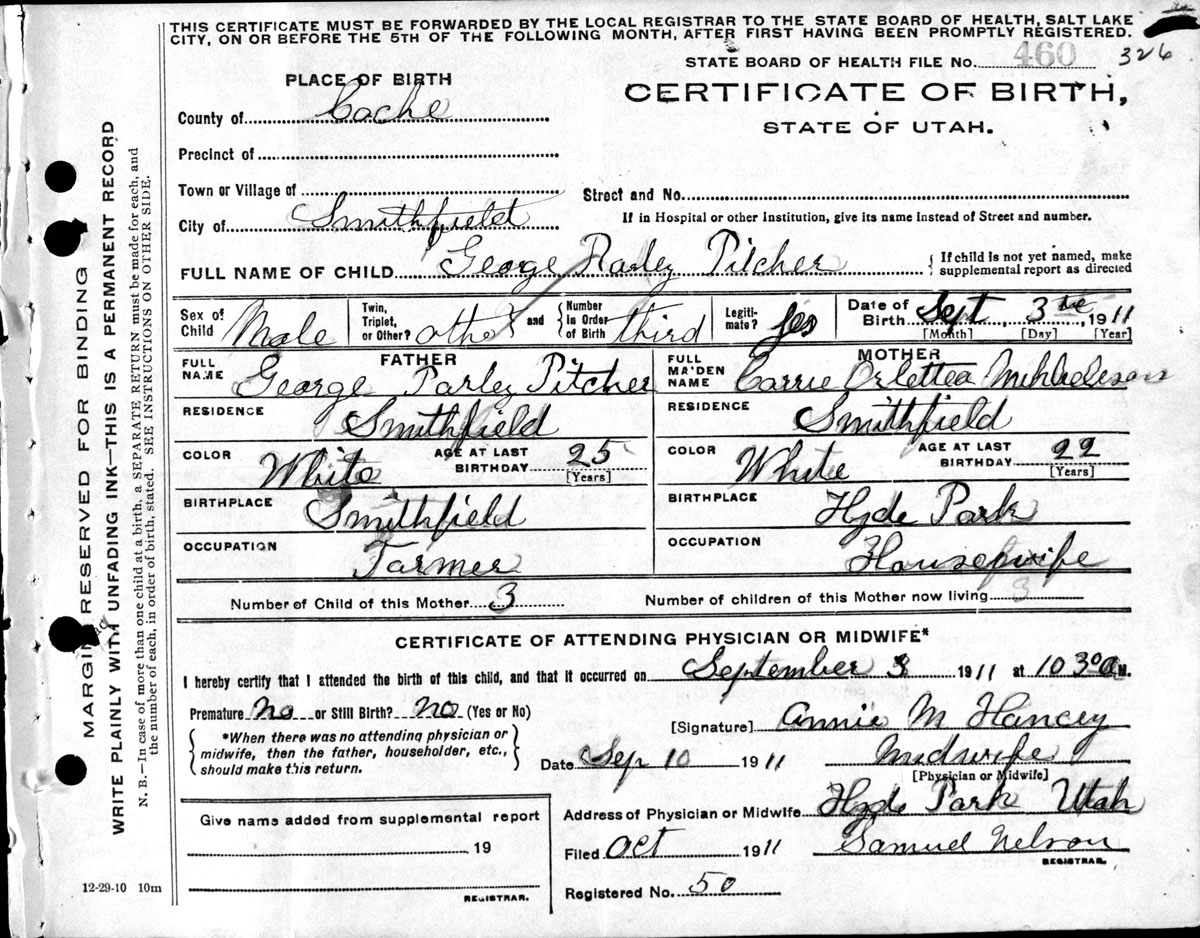 THIS CERTIFICATE MUST BE FORWARDED BY THE LOCAL REGISTRAR TO THE STATE BOARD OF HEALTH, SALT LAKE
CITY, ON OR BEFORE THE 5TH OF THE FOLLOWING MONTH, AFTER FIRST HAVING BEEN PROMPTLY REGISTERED.
STATE BOARD OF HEALTH FILE No. 460 326
PLACE OF BIRTH
CERTIFICATE OF BIRTH,
STATE OF UTAH.
County of Cache
Precinct of
Town or Village of
Street and No.
City of Smithfield
If in Hospital or other Institution, give its name instead of Street and number.
FULL NAME OF CHILD George Parley Pitcher
{ If child is not yet named, make
supplemental report as directed
Sex of Child Male
Twin, Triplet, or Other? other and { Number in Order of Birth third
Legiti- mate? yes
Date of Birth Sept 3, 1911
[Month] [Day] [Year]
FATHER
FULL NAME George Parley Pitcher
MOTHER
FULL MAIDEN NAME Carrie Orlettea
RESIDENCE Smithfield
RESIDENCE Smithfield
COLOR White AGE AT LAST BIRTHDAY 25 [Years]
COLOR White AGE AT LAST BIRTHDAY 22 [Years]
BIRTHPLACE Smithfield
BIRTHPLACE Hyde Park
OCCUPATION Farmer
OCCUPATION Housewife
Number of Child of this Mother 3
Number of children of this Mother now living 3
CERTIFICATE OF ATTENDING PHYSICIAN OR MIDWIFE*
I hereby certify that I attended the birth of this child, and that it occurred on September 3 1911 at 10 30 a M.
Premature no or Still Birth? no (Yes or No)
[Signature] Annie M Hancey
{ *When there was no attending physician or
midwife, then the father, householder, etc.,
should make this return. }
Date Sep 10 1911 Midwife
[Physician or Midwife]
Address of Physician or Midwife Hyde Park Utah
Give name added from supplemental report
, 19
REGISTRAR.
Filed Oct 1911 Samuel Nelson
REGISTRAR.
Registered No. 50
12-29-10 10m
MARGIN RESERVED FOR BINDING
WRITE PLAINLY WITH UNFADING INK—THIS IS A PERMANENT RECORD
N. B.—In case of more than one child at a birth, a SEPARATE RETURN must be made for each, and
the number of each, in order of birth, stated. SEE INSTRUCTIONS ON OTHER SIDE.